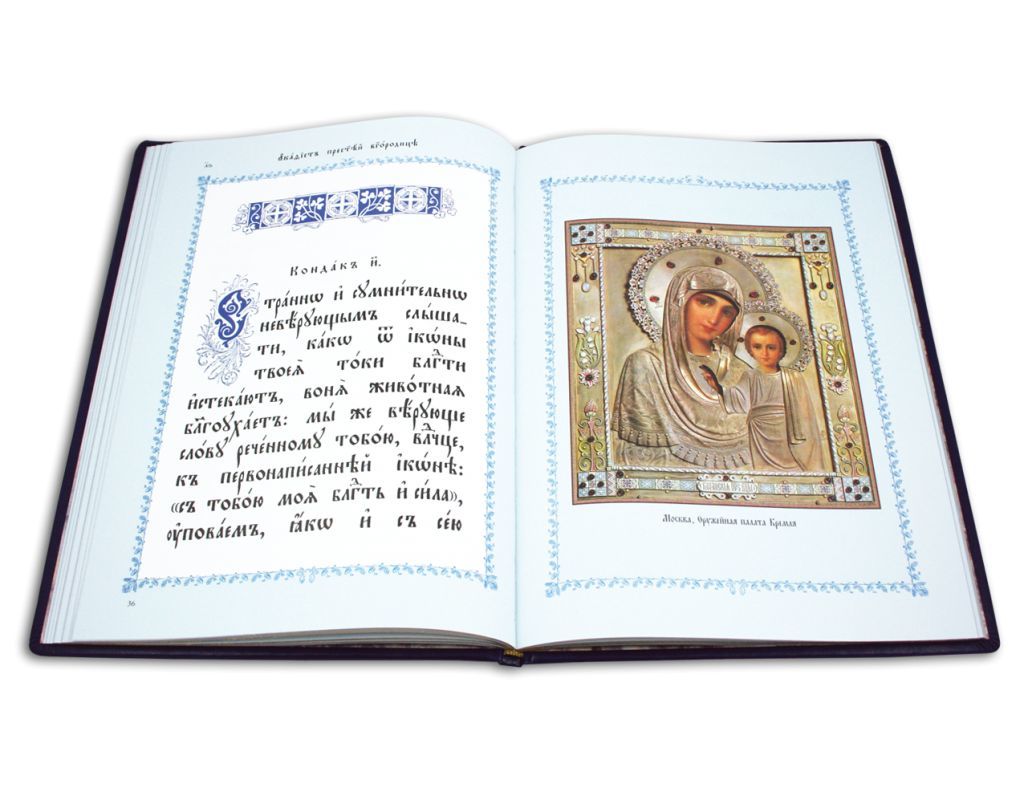 Ѧка́ѳїстъ прест҃ѣ́й бц҃ѣ
Конда́къ и҃.
Стра́ннѡ и҆ сумни́тельнѡ
невѣ́рующымъ слы́ша-
ти, ка́кѡ ѿ і҆кѡ́ны
твоеѧ̀ то́ки блг҃ти
и҆стека́ютъ, вонѧ̀ живо́тнаѧ
бл҃гоуха́етъ: мы́ же вѣ́рующе
сло́ву рече́нному тобо́ю, влⷣчце,
къ первонапи́саннѣй і҆кѡ́нѣ:
«съ тобо́ю моѧ̀ блг҃ть и҆ си́ла»,
ᲂу҆пова́емъ, ꙗ҆́кѡ и҆ съ се́ю
36
Москва, Оружейная палата Кремля